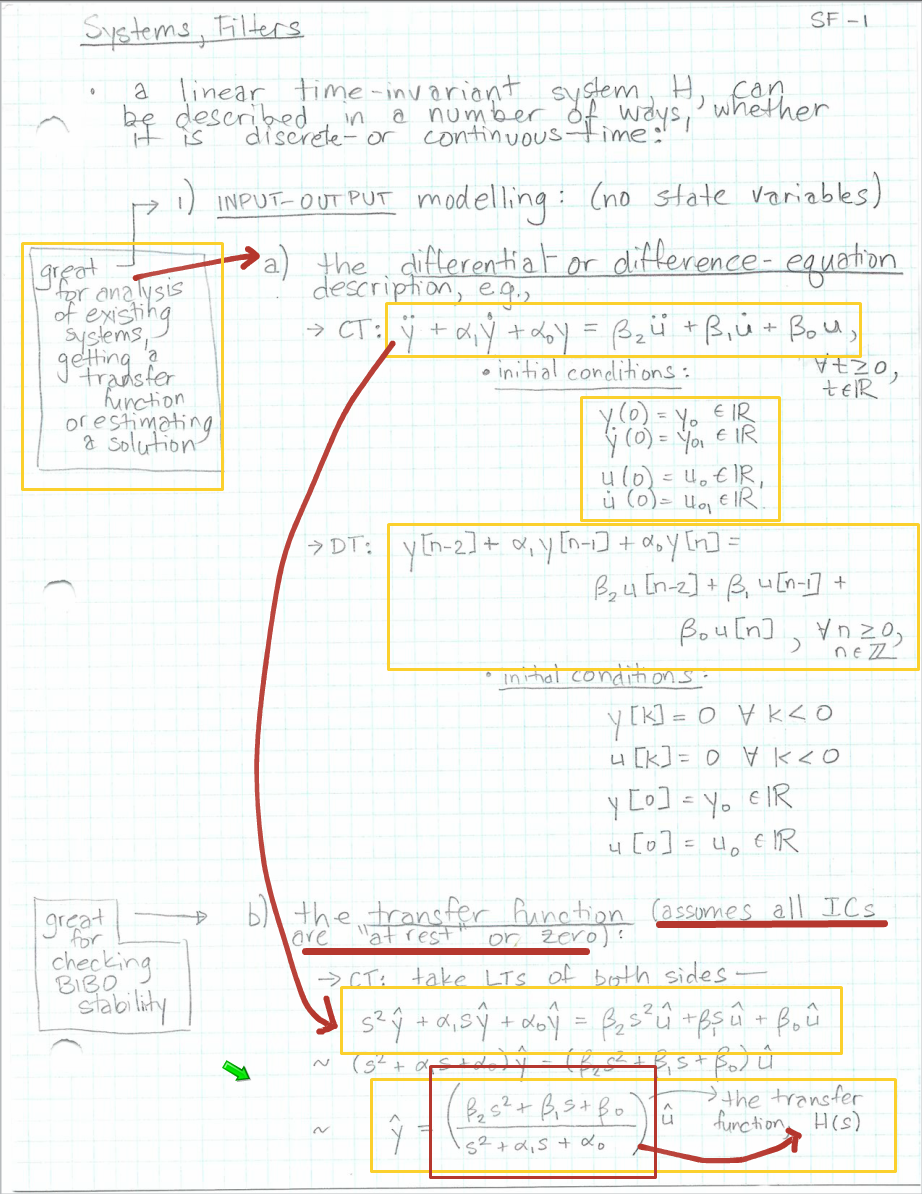 Systems, Filters
SF-1
• a linear time-invariant system, H, can
be described in a number of ways, whether
it is discrete- or continuous-time:
1) INPUT-OUTPUT modelling: (no state variables)
great
for analysis
of existing
systems,
getting a
transfer
function
or estimating
a solution
a) the differential- or difference-equation
description, e.g.,
→ CT: ÿ + α₁ẏ + α₀y = β₂ü + β₁u̇ + β₀u,
∀t≥0,
t∈ℝ
• initial conditions:
y(0) = y₀ ∈ℝ
ẏ(0) = y₀₁ ∈ℝ
u(0) = u₀ ∈ℝ,
u̇(0) = u₀₁ ∈ℝ.
→ DT: y[n-2] + α₁y[n-1] + α₀y[n] =
β₂u[n-2] + β₁u[n-1] +
β₀u[n] , ∀n≥0,
n∈ℤ
• initial conditions:
y[k] = 0 ∀ k<0
u[k] = 0 ∀ k<0
y[0] = y₀ ∈ℝ
u[0] = u₀ ∈ℝ
great
for
checking
BIBO
stability
b) the transfer function (assumes all ICs
are "at rest" or zero):
→ CT: take LTs of both sides —
s²ŷ + α₁sŷ + α₀ŷ = β₂s²û + β₁sû + β₀û
~ (s² + α₁s + α₀)ŷ = (β₂s² + β₁s + β₀)û
~ ŷ = ((β₂s² + β₁s + β₀)/(s² + α₁s + α₀)) û
→ the transfer
function, H(s)